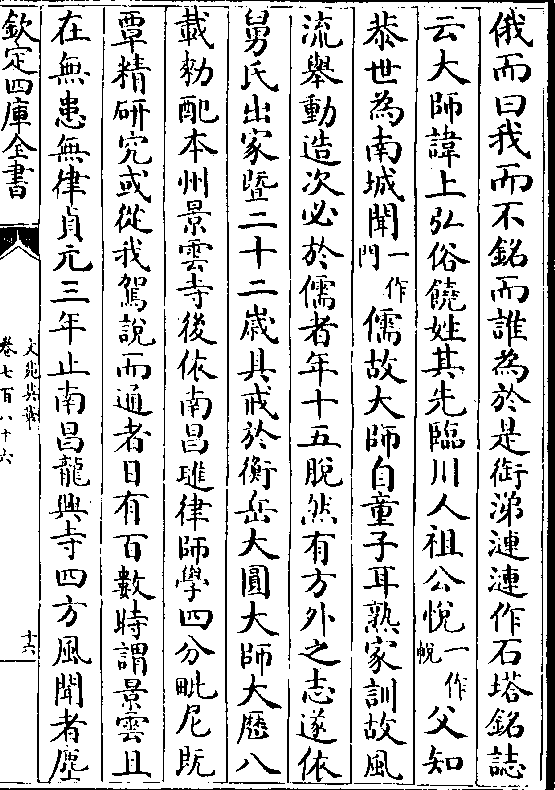 俄而曰我而不銘而誰為於是銜涕漣漣作石塔銘誌
云大師諱上弘俗饒姓其先臨川人祖公悅一作帨父知
恭世為南城聞一作門儒故大師自童子耳熟家訓故風
流舉動造次必於儒者年十五脫然有方外之志遂依
舅氏出家暨二十二歲具戒於衡岳大圓大師大歷八
載勑配本州景雲寺後依南昌璡律師學四分毗尼既
覃精研究或從我駕說而通者日有百數時謂景雲且
在無患無律貞元三年止南昌龍興寺四方風聞者塵
欽定四庫全書
文苑英華
卷七百八十六
十六